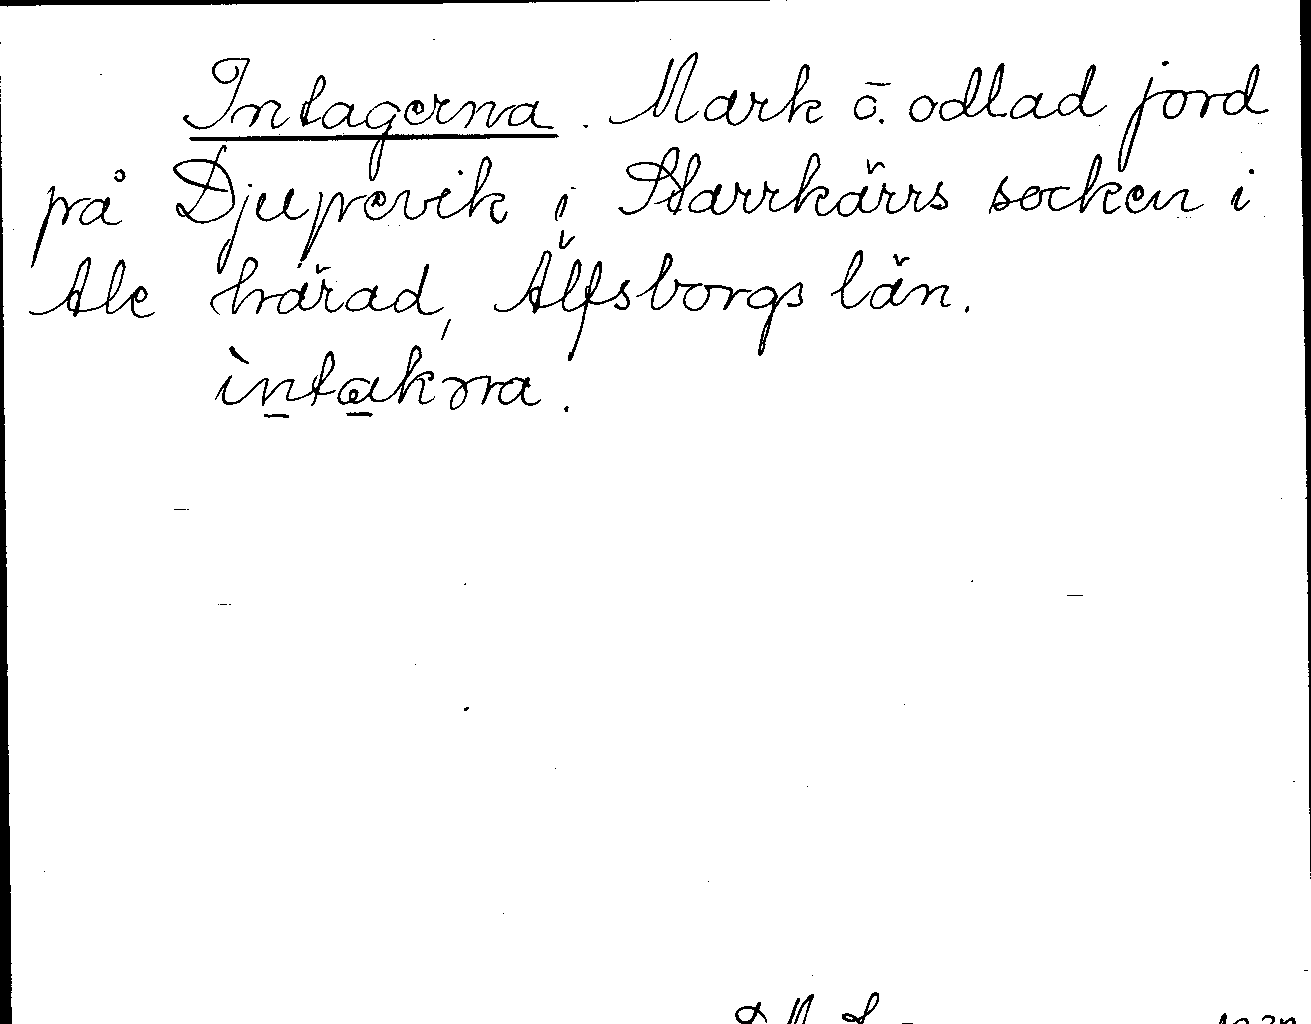 Intagerna. Mark o. odlad jord
på Djupevik i Starrkärrs socken i
Ale härad, Älfsborgs län.
ìntakɔra.